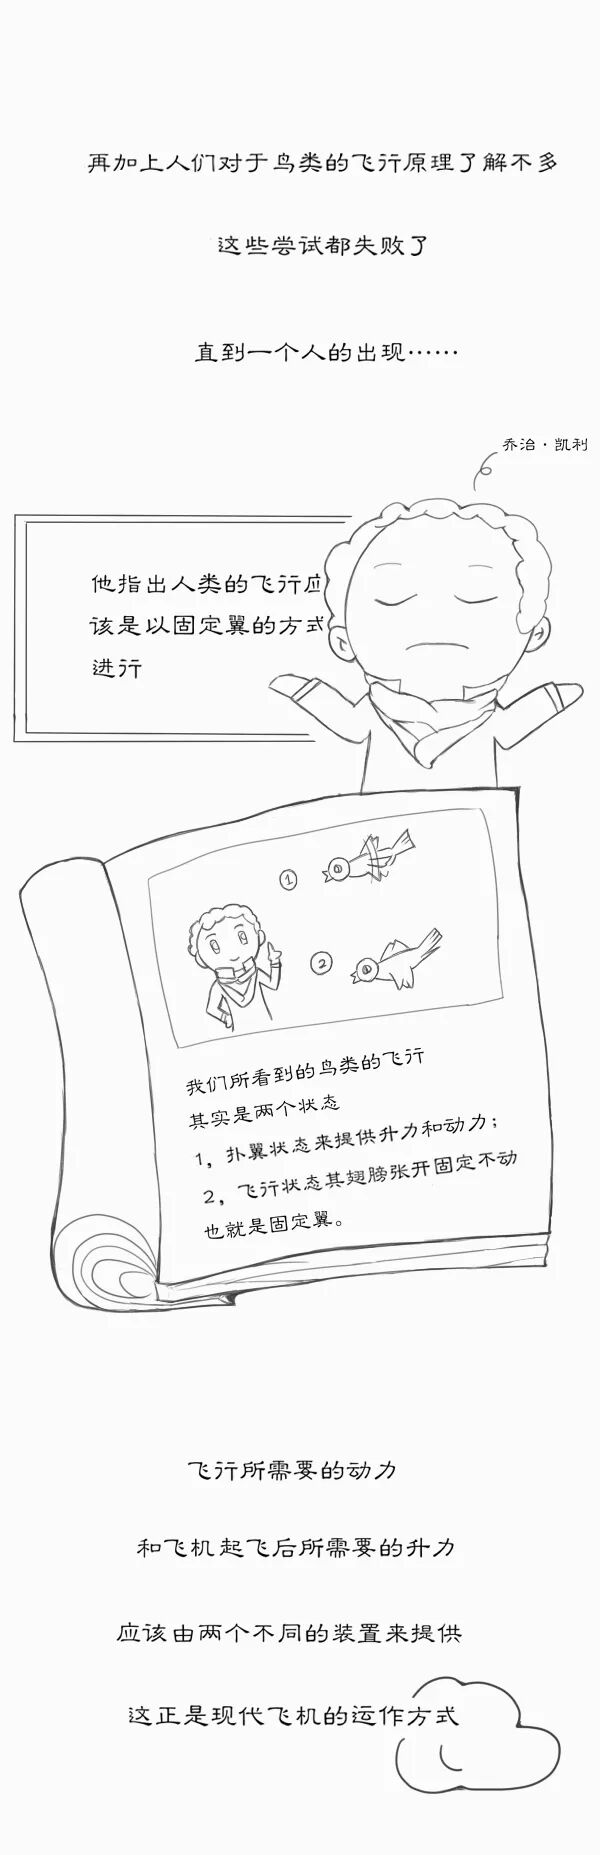 再加上人们对于鸟类的飞行原理了解不多
这些尝试都失败了
直到一个人的出现……
乔治·凯利
他指出人类的飞行应
该是以固定翼的方式
进行
1
2
我们所看到的鸟类的飞行
其实是两个状态
1，扑翼状态来提供升力和动力；
2，飞行状态其翅膀张开固定不动
也就是固定翼。
飞行所需要的动力
和飞机起飞后所需要的升力
应该由两个不同的装置来提供
这正是现代飞机的运作方式